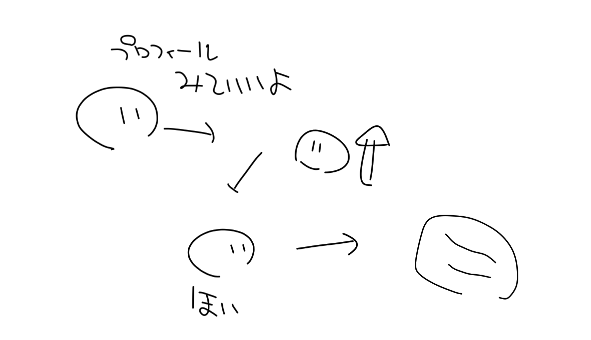 プロフィール
みていいよ
ほい